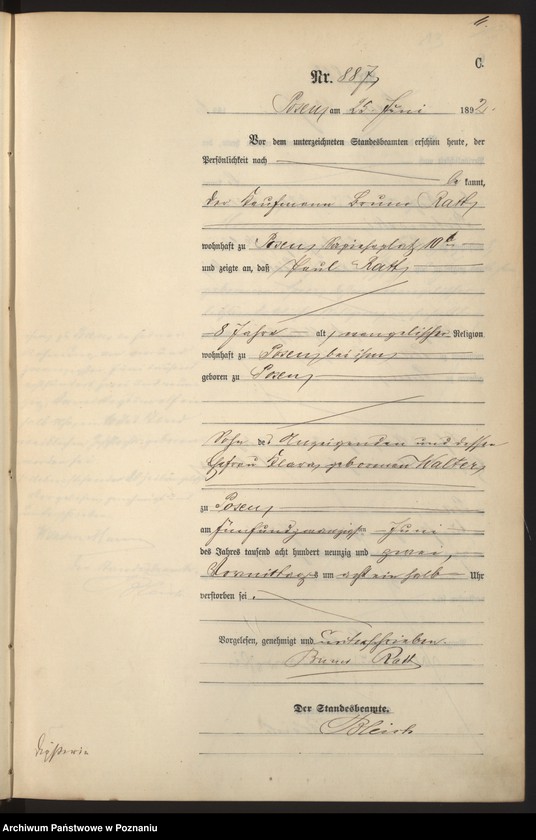 C.
Nr. 887
Posen, am 25. Juni 1892.
Vor dem unterzeichneten Standesbeamten erschien heute, der
Persönlichkeit nach
be kannt,
der Kaufmann Bruno Ratt,
wohnhaft zu Posen, Sapiehaplatz 10b
und zeigte an, daß Paul Ratt,
8 Jahre alt, evangelischer Religion
wohnhaft zu Posen, bei ihm,
geboren zu Posen,
Sohn des Anzeigenden und dessen
Ehefrau Klara, geborenen Walter,
zu Posen,
am fünfundzwanzigsten Juni
des Jahres tausend acht hundert neunzig und zwei,
Vormittags um acht ein halb Uhr
verstorben sei.
Vorgelesen, genehmigt und unterschrieben.
Bruno Ratt
Der Standesbeamte.
Bleich
Archiwum Państwowe w Poznaniu